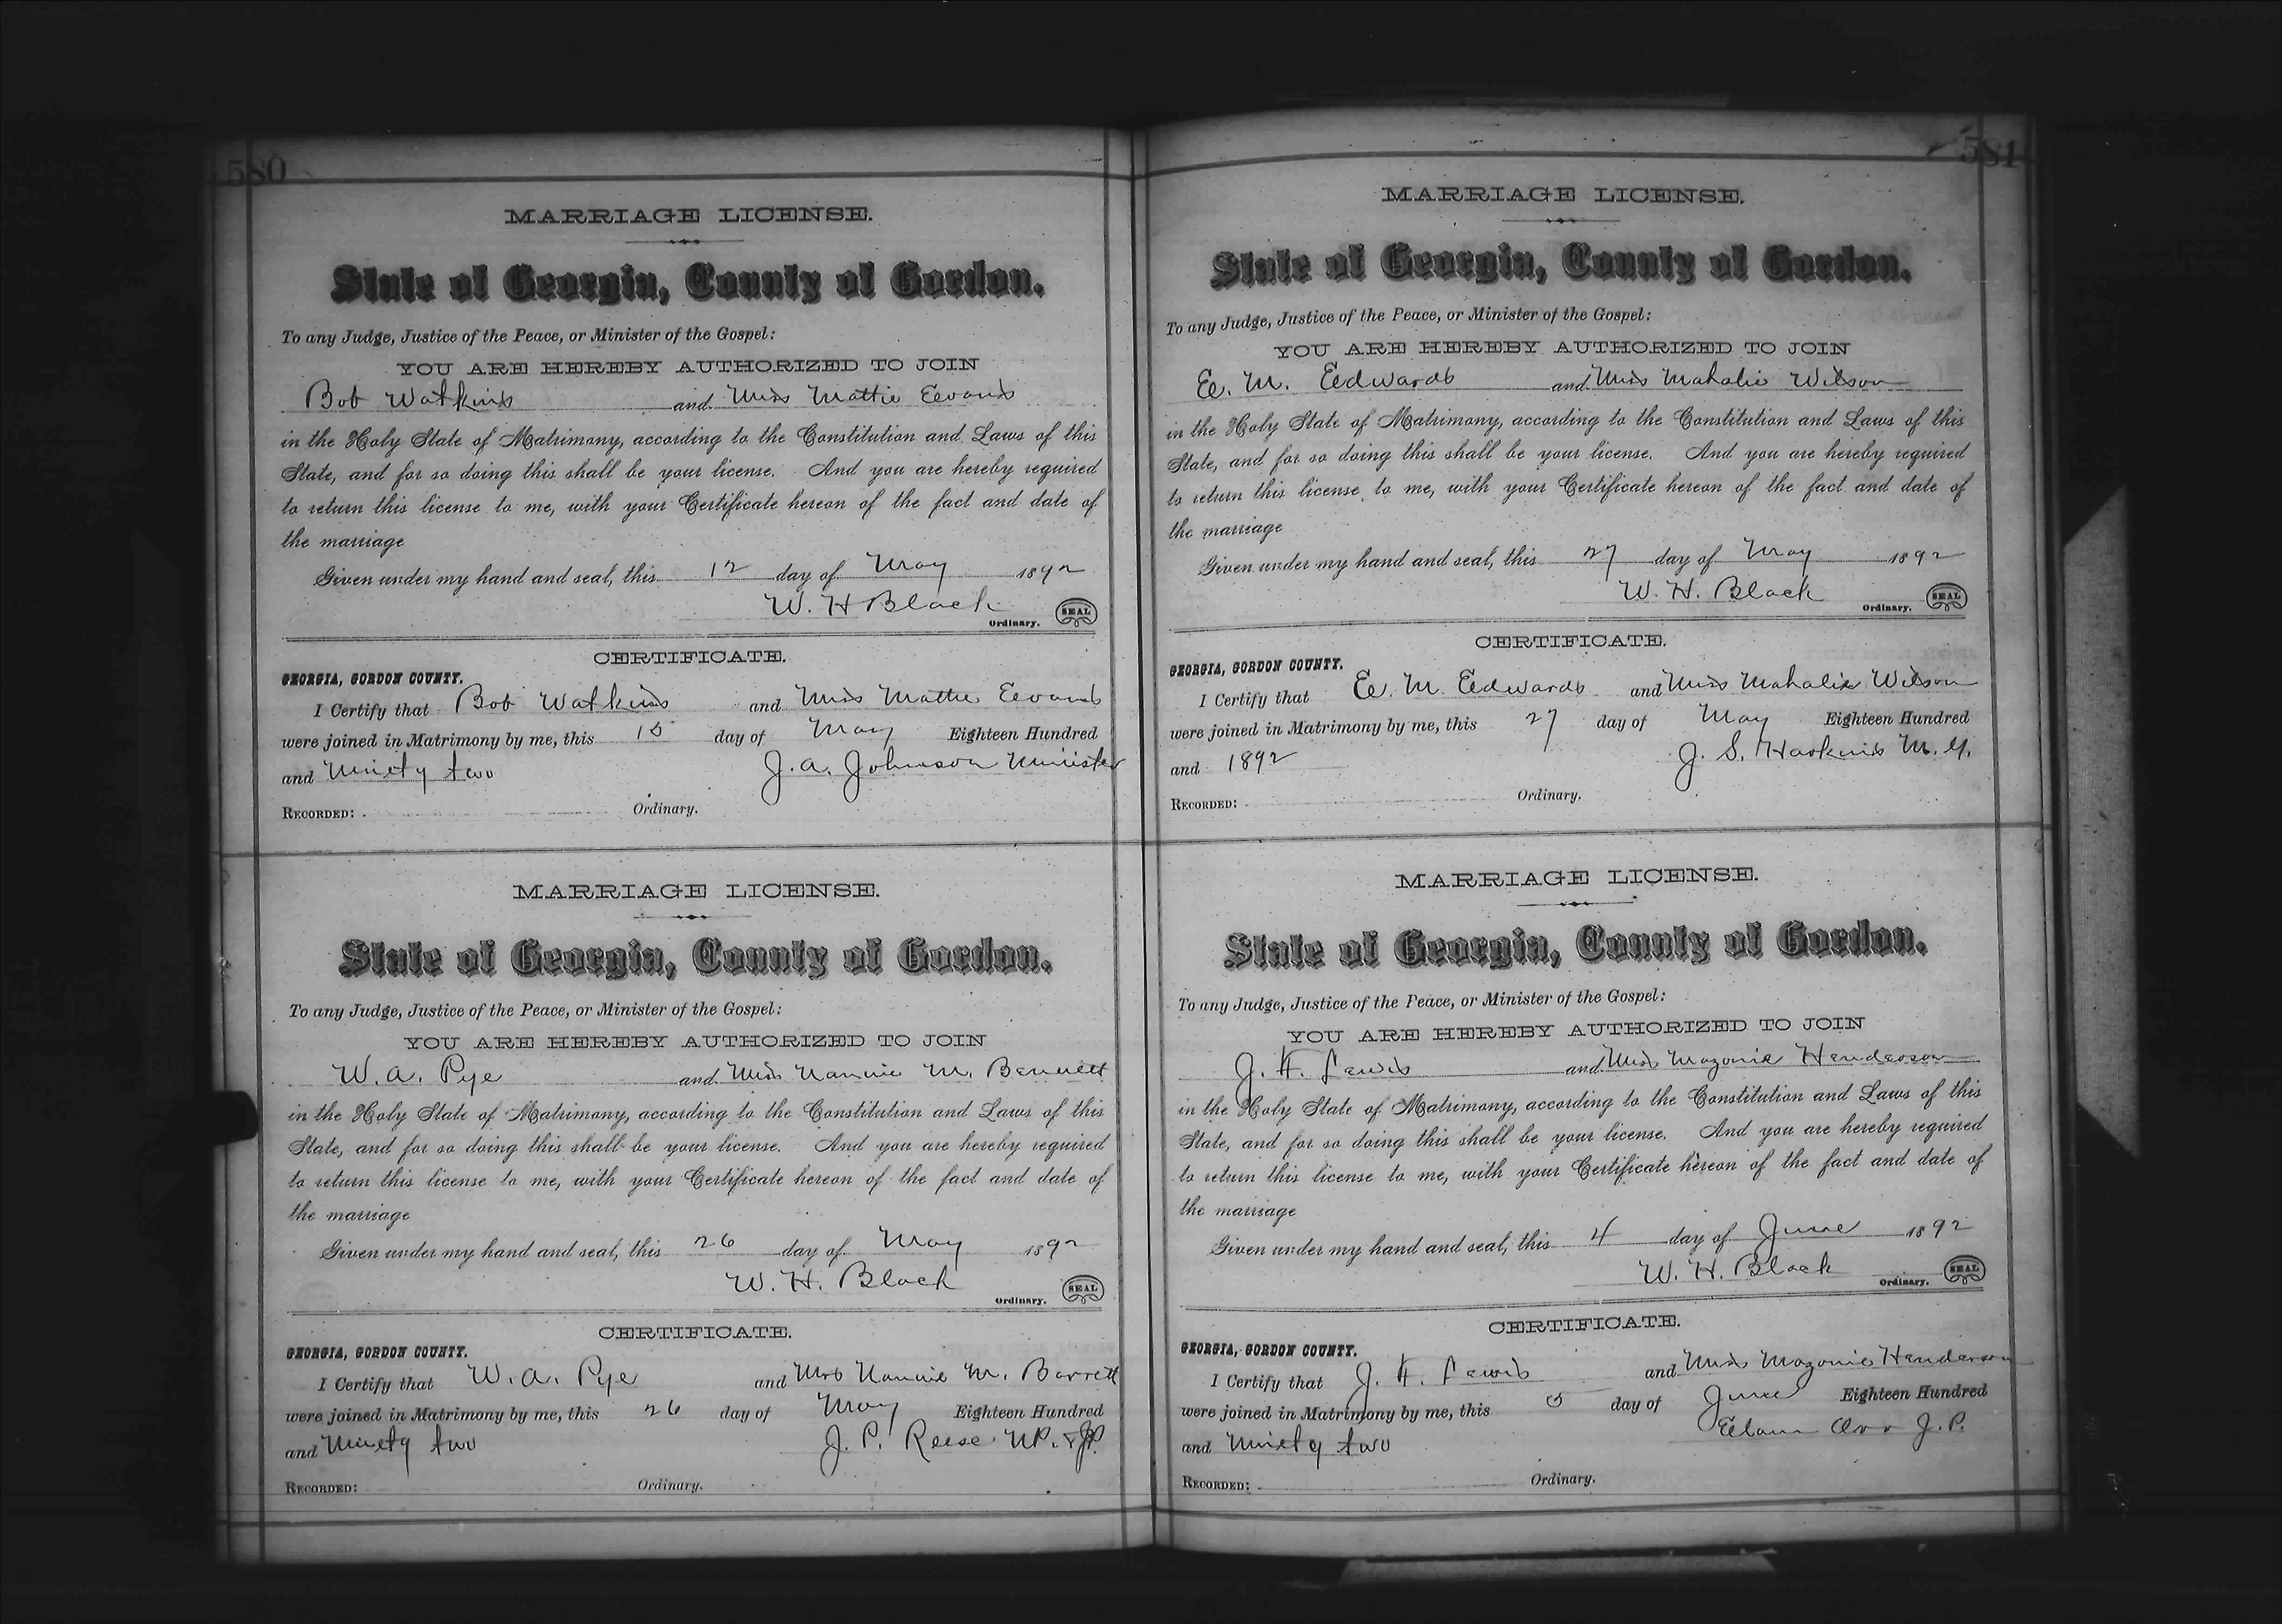 580
MARRIAGE LICENSE.
State of Georgia, County of Gordon.
To any Judge, Justice of the Peace, or Minister of the Gospel:
YOU ARE HEREBY AUTHORIZED TO JOIN
Bob Watkins and Miss Mattie Eevans
in the Holy State of Matrimony, according to the Constitution and Laws of this
State, and for so doing this shall be your license. And you are hereby required
to return this license to me, with your Certificate hereon of the fact and date of
the marriage
Given under my hand and seal, this 12 day of May 1892
W. H Black
Ordinary. SEAL
CERTIFICATE.
GEORGIA, GORDON COUNTY.
I Certify that Bob Watkins and Miss Mattie Eevans
were joined in Matrimony by me, this 15 day of May Eighteen Hundred
and Ninety two J. A. Johnson Minister
RECORDED: Ordinary.
MARRIAGE LICENSE.
State of Georgia, County of Gordon.
To any Judge, Justice of the Peace, or Minister of the Gospel:
YOU ARE HEREBY AUTHORIZED TO JOIN
W. A. Pye and Miss Nannie M. Bennett
in the Holy State of Matrimony, according to the Constitution and Laws of this
State, and for so doing this shall be your license. And you are hereby required
to return this license to me, with your Certificate hereon of the fact and date of
the marriage
Given under my hand and seal, this 26 day of May 1892
W. H. Black
Ordinary. SEAL
CERTIFICATE.
GEORGIA, GORDON COUNTY.
I Certify that W. A. Pye and Mrs Nannie M. Barrett
were joined in Matrimony by me, this 26 day of May Eighteen Hundred
and Ninety two J. P. Reese NP. & JP.
RECORDED: Ordinary.
581
MARRIAGE LICENSE.
State of Georgia, County of Gordon.
To any Judge, Justice of the Peace, or Minister of the Gospel:
YOU ARE HEREBY AUTHORIZED TO JOIN
E. M. Eedwards and Miss Mahalie Wilson
in the Holy State of Matrimony, according to the Constitution and Laws of this
State, and for so doing this shall be your license. And you are hereby required
to return this license to me, with your Certificate hereon of the fact and date of
the marriage
Given under my hand and seal, this 27 day of May 1892
W. H. Black
Ordinary. SEAL
CERTIFICATE.
GEORGIA, GORDON COUNTY.
I Certify that E. M. Eedwards and Miss Mahalie Wilson
were joined in Matrimony by me, this 27 day of May Eighteen Hundred
and 1892 J. S. Harkins M. G.
RECORDED: Ordinary.
MARRIAGE LICENSE.
State of Georgia, County of Gordon.
To any Judge, Justice of the Peace, or Minister of the Gospel:
YOU ARE HEREBY AUTHORIZED TO JOIN
J. H. Lewis and Miss Mozonie Henderson
in the Holy State of Matrimony, according to the Constitution and Laws of this
State, and for so doing this shall be your license. And you are hereby required
to return this license to me, with your Certificate hereon of the fact and date of
the marriage
Given under my hand and seal, this 4 day of June 1892
W. H. Black
Ordinary. SEAL
CERTIFICATE.
GEORGIA, GORDON COUNTY.
I Certify that J. H. Lewis and Miss Mozonie Henderson
were joined in Matrimony by me, this 5 day of June Eighteen Hundred
and Ninety two Eelam Orr J. P.
RECORDED: Ordinary.